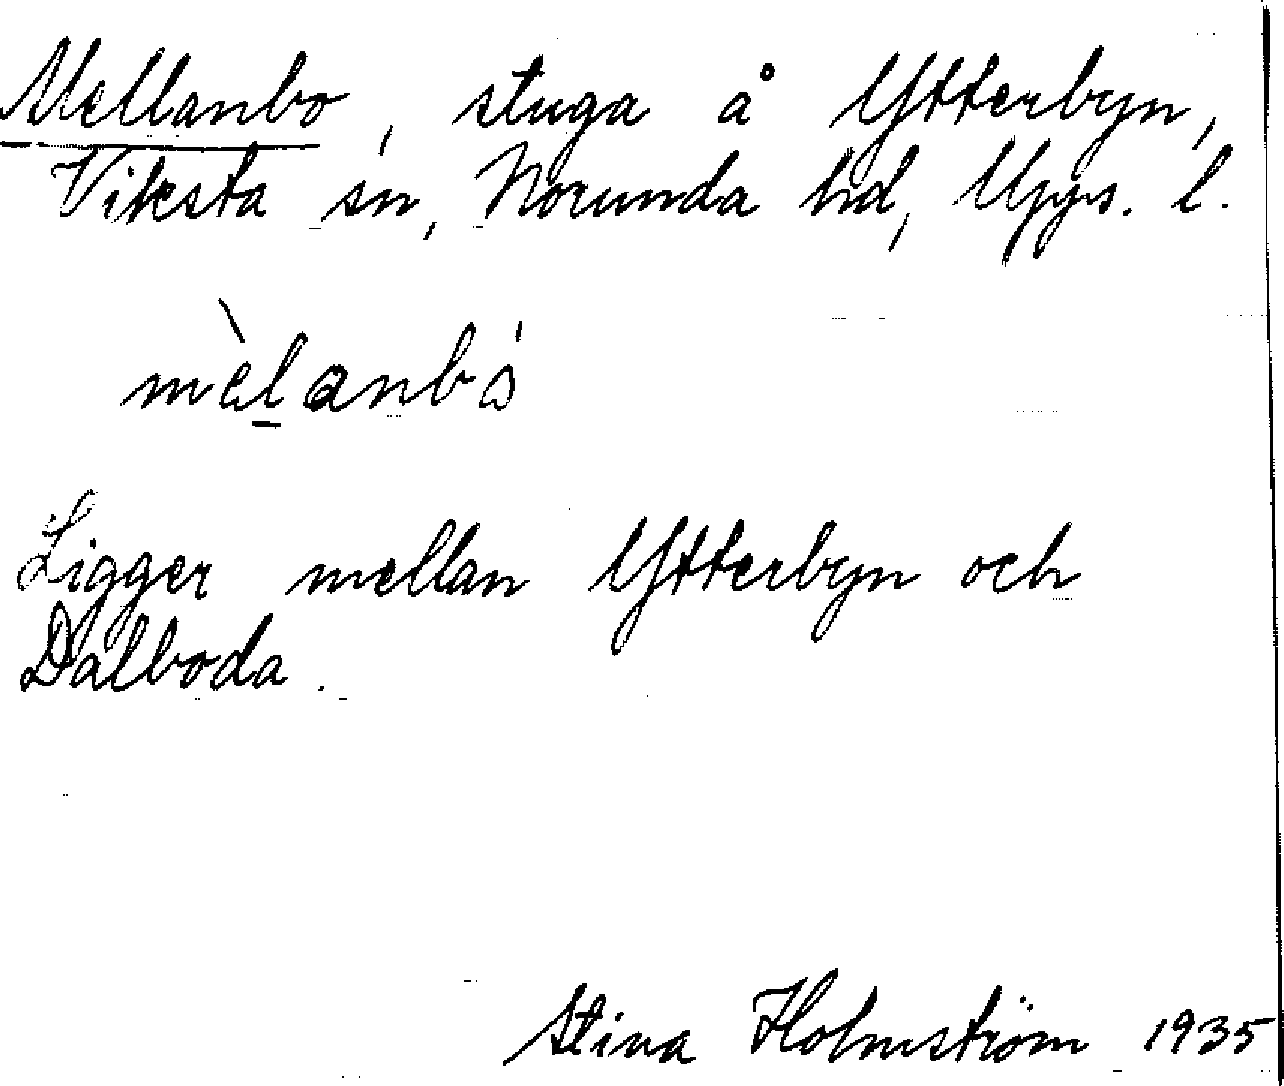 Mellanbo, stuga å Ytterbyn,
Viksta sn, Norunda hd, Upps. l.
mèlanbó
Ligger mellan Ytterbyn och
Dalboda.
Stina Holmström 1935